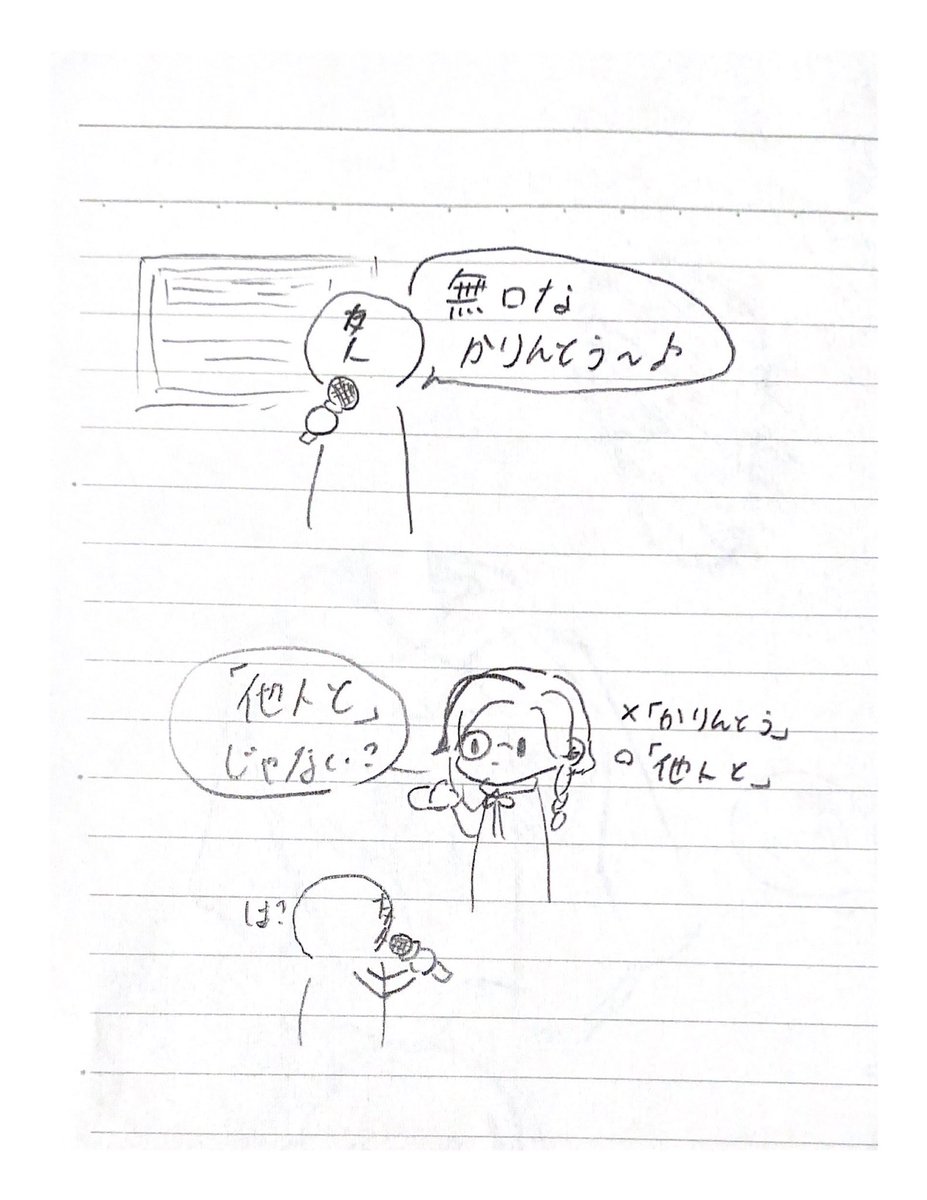 友人
無口な
かりんとう〜♪
「他人と」
じゃない?
×「かりんとう」
○「他人と」
は?
友人